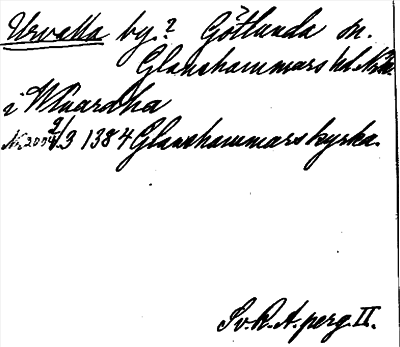 Urvalla by? Götlunda sn.
Glanshammars hd. När.
i Waardha
Nr 2004 2/3 1384 Glanshammars kyrka.
Sv. R. A. perg. II.